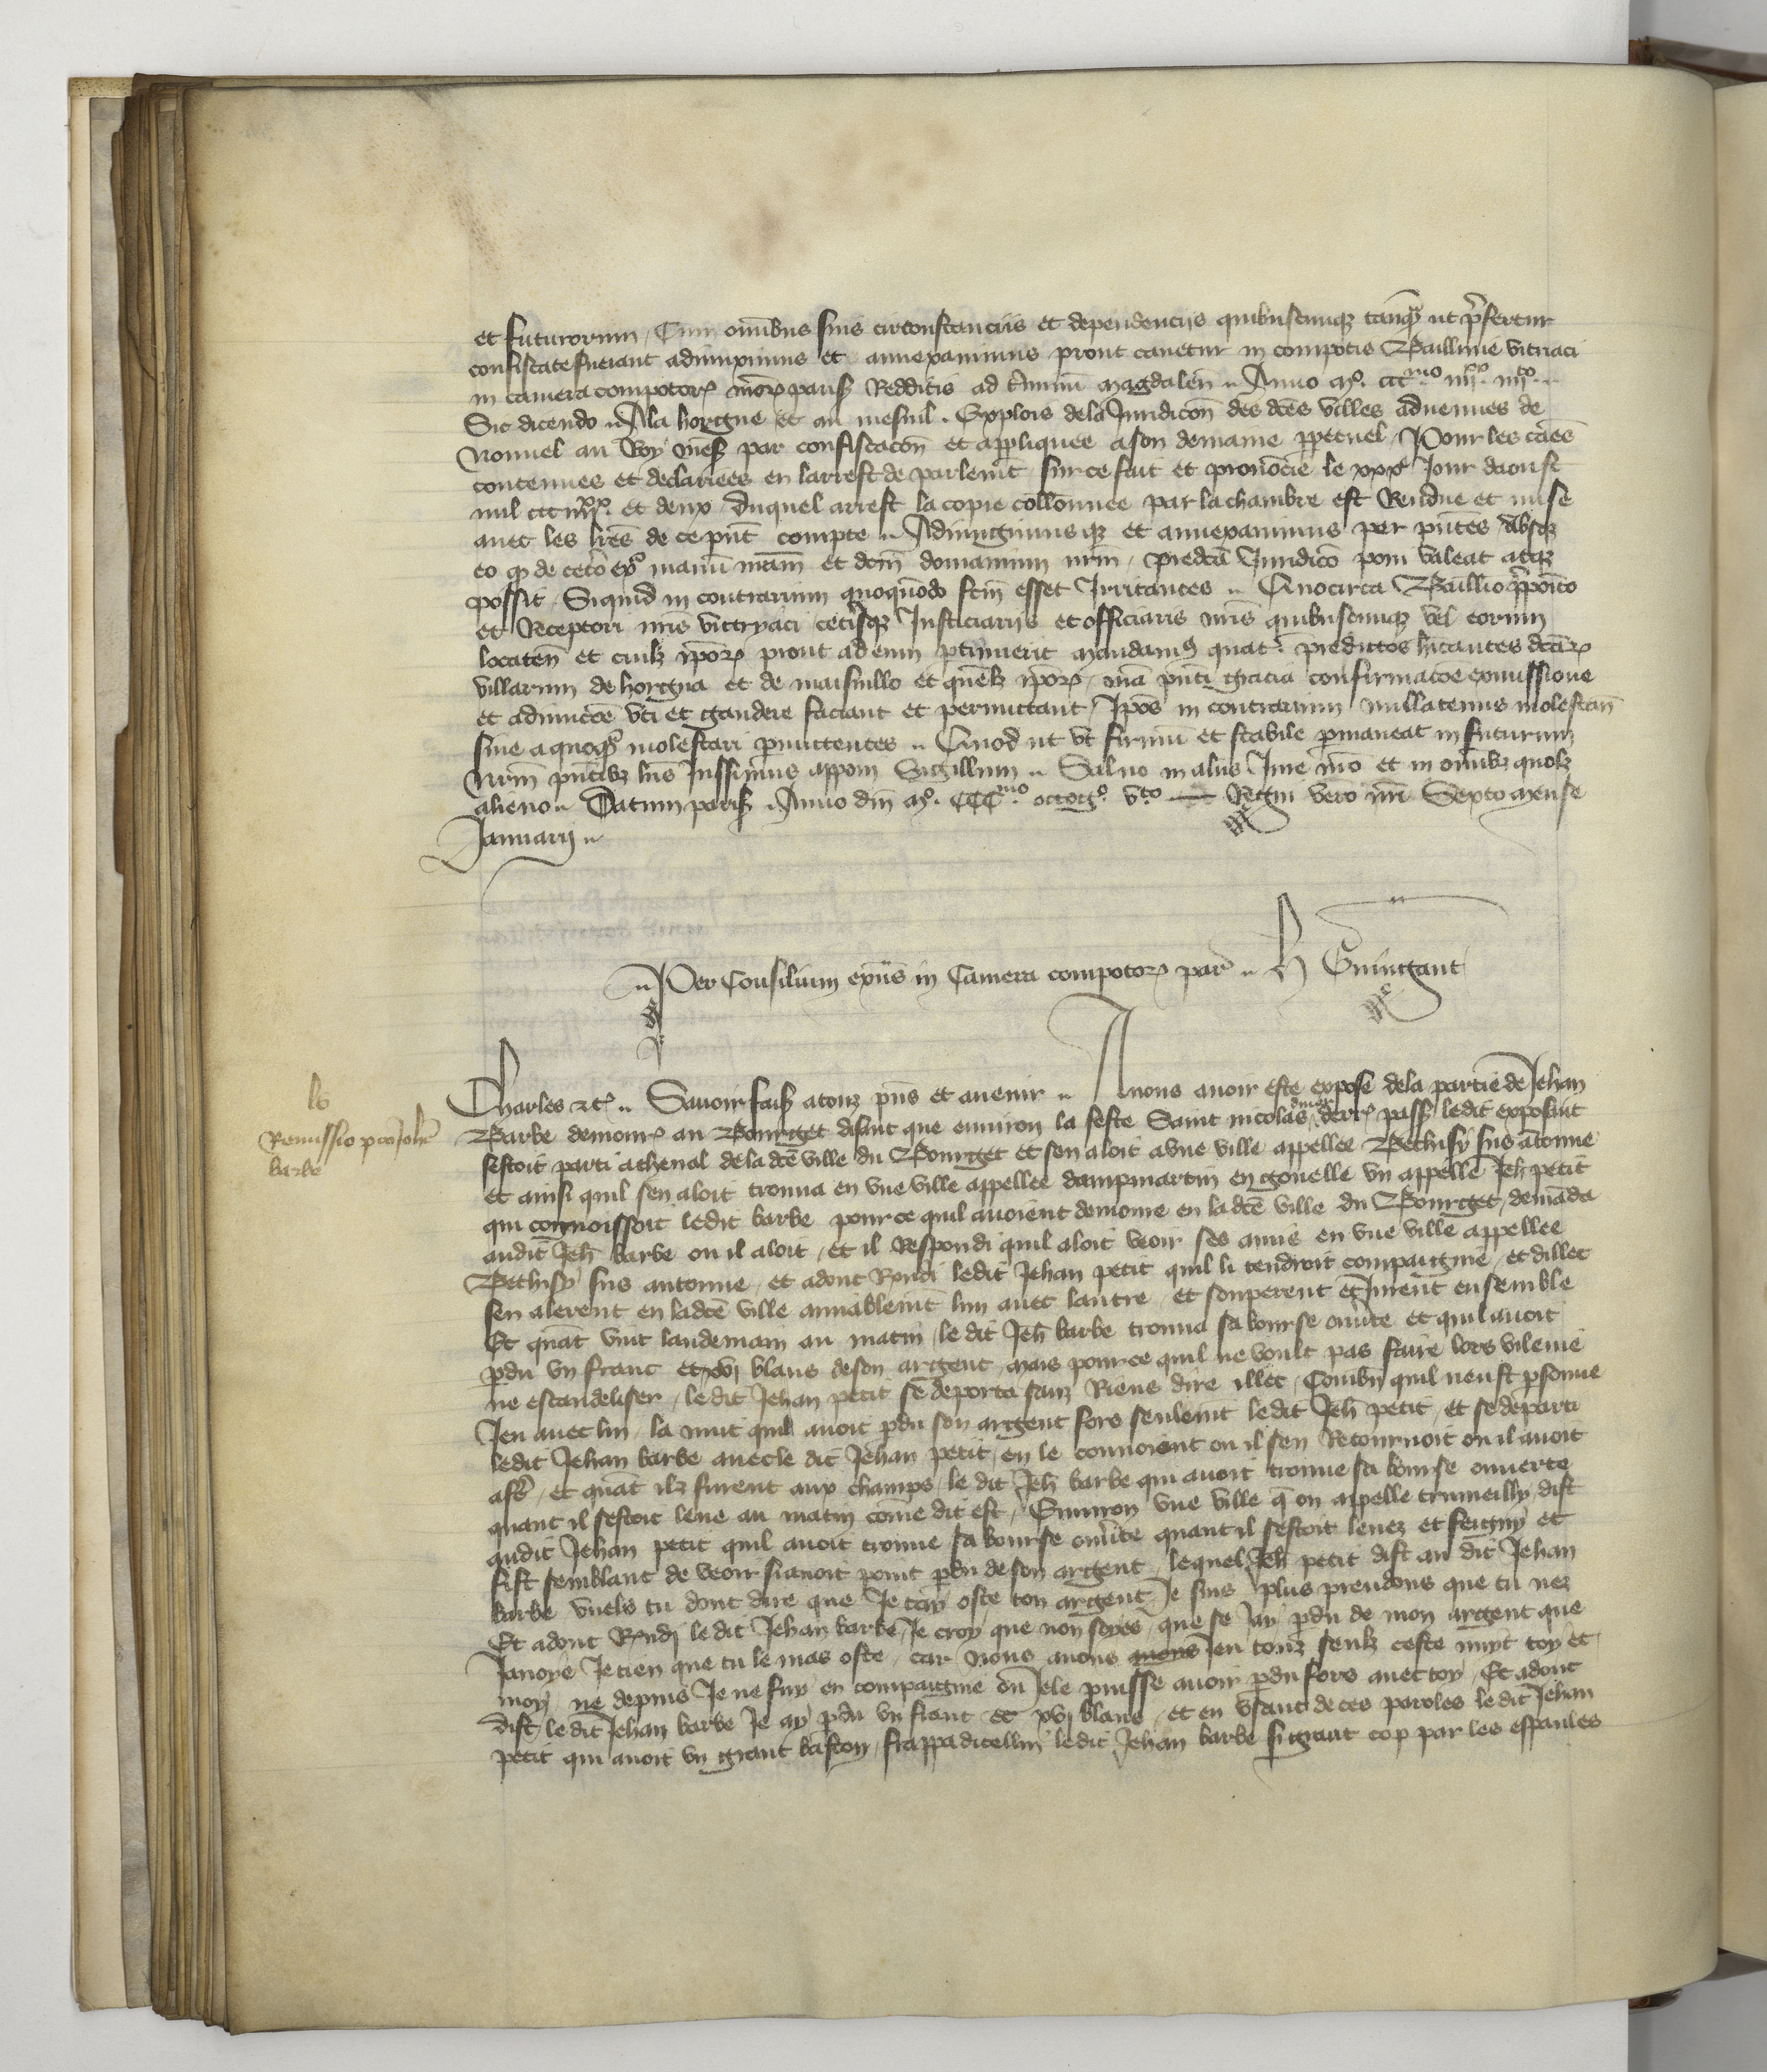 et futurorum / Cum omibus suis circonstanciis et dependencijs quibuscumqz tanqͣ ut p̱̃fertur
confiscate fuerant adiunximus et annexauimus prout cauetur in compotis Baillinie vitriaci
in camera compotoꝝ nr̃oꝝ parisꝫ Redditis ad t̃minũ magdaleñ .. Anno mᵒ. cccᵐᵒ. iiijˣˣ. iiijᵗᵒ. ..
Sic dicendo .. Ala horgne et au mesnil . Explois dela Juridicoñ des dc̃es villes aduenues de
nouuel au Roy nr̃e sꝫ par confiscacoñ et appliquee a son demaine ppetuel / Pour les cães
contenues et declariees en larrest de parlem̃t sur ce fait et prononcie le xxxᵉ Jour daoust
mil ccc iiijˣˣ. et deux / duquel arrest la copie collonnee par la chambre est Rendue et mise
auec les lr̃es de ce pñt compte .. Adiungimusqz et annexauimus per pñtes absqz
eo qͥ de cet̃o exͣ manũ nr̃am et dcm̃ domanium nr̃m / predcã Juridico poni valeat atqz
possit . Siquid in contrarium quoquomodo fcm̃ esset Irritantes .. Quocirca Baillio p̃poito
et Receptori nr̃is victryaci cet̃isqz Justiciarijs et officiaris nr̃is quibuscumqz vel eorum
locateñ et cuilꝫ ip̃oꝝ prout ad eum ptinuerit mandamꝰ quatꝰ predictos hitantes dcãꝝ
villarum de horgna et de maisnillo et quẽlꝫ ip̃oꝝ / nr̃a pñti gracia confirmacõe comissione
et adiunccõe vti et gaudere faciant et permittant / Ip̃os in contrarium nullatenus molestañ
siue a quoqͣ molestari pmittentes .. Quod ut vt firmũ et stabile pmaneat in futurum
nr̃m pñtibꝫ lr̃is Jussimus apponi Sigillum .. Saluo in alijs Jure nr̃o et in oĩbꝫ quolꝫ
alieno .. Datum parisꝫ . Anno dnĩ mᵒ. CCCᵐᵒ octogᵒ. vᵗᵒ — Regni vero nr̃i Sexto mense
Januarij ..
.. Per Consilium exiĩs in Camera compotoꝝ parꝰ .. H Guingant
ls
Remissio pro Joh̃e
barbe
Charles ⁊cꝫ .. Sauoir faisꝫ a touz pñs et auenir .. A nous auoir este expose dela partie de Jehan
Barbe demourꝫ au Bourget disant que enuiron la feste Saint nicolas diuer derrꝫ passꝫ ledit exposant
sestoit parti acheual de la dcẽ ville du Bourget et sen aloit a vne ville appellee Bethisy sus ãtonne
et ainsi quil sen aloit trouua en vne ville appellee dampmartin en gouelle vn appelle Jeh̃ petit
qui connoissoit ledit barbe pour ce quil auoient demoure en la dcẽ ville du Bourget / demãda
audit Jeh̃ barbe ou il aloit / et il Respondi quil aloit veoir ses amis en vne ville appellee
Bethisy sus antonne / et adont Rñdi ledit Jehan petit quil li tendroit compaignie / et dillec
sen alerent en ladcẽ ville amiablem̃t lun auec lautre / et souperent et Jurent ensemble
Et quãt vint landemain au matin / le dit Jeh̃ barbe trouua sa bourse ouũte et quil auoit
pdu vn franc et xvj blans de son argent / mais pour ce quil ne voult pas faire lors vilenie
ne escandeliser / le dit Jehan petit se deporta sanz Riens dire illec / Combiñ quil neust psonne
Jeu auec lui / la nuit quil auoit pdu son argent fors seulem̃t ledit Jeh̃ petit / et se departi
ledit Jehan barbe auec le dit Jehan petit / en le conuoient ou il sen Retournoit ou il auoit
aff̃e / et quãt ilz furent aux champs / le dit Jeh̃ barbe qui auoit trouue sa bourse ouuerte
quant il sestoit leue au matin cõme dit est / Enuiron vne ville q̃ on appelle trumeilly / dist
audit Jehan petit quil auoit trouue sa bourse ouũte quant il sestoit leuez et feigny et
fist semblant de veoir si auoit point pdu de son argent / lequel Jeh̃ petit dist au dit Jehan
barbe vuels tu dont dire que Je tay oste ton argent / Je suis plus preudons que tu nez
Et adont Rñdj le dit Jehan barbe / Je croy que non soyes / que se Jay pdu de mon argent que
Jauoye Je tien que tu le mas oste / car nous auons Jeu touz seulz ceste nuyt toy et
moy / ne depuis Je ne fuy en compaignie ou Je le puisse auoir pdu fors auec toy / Et adont
dist le dit Jehan barbe Je ay pdu vn franc et xvj blans / et en vsant de ces paroles le dit Jehan
petit qui auoit vn grant baston / frappa dicellui ledit Jehan barbe si grant cop par les espaules